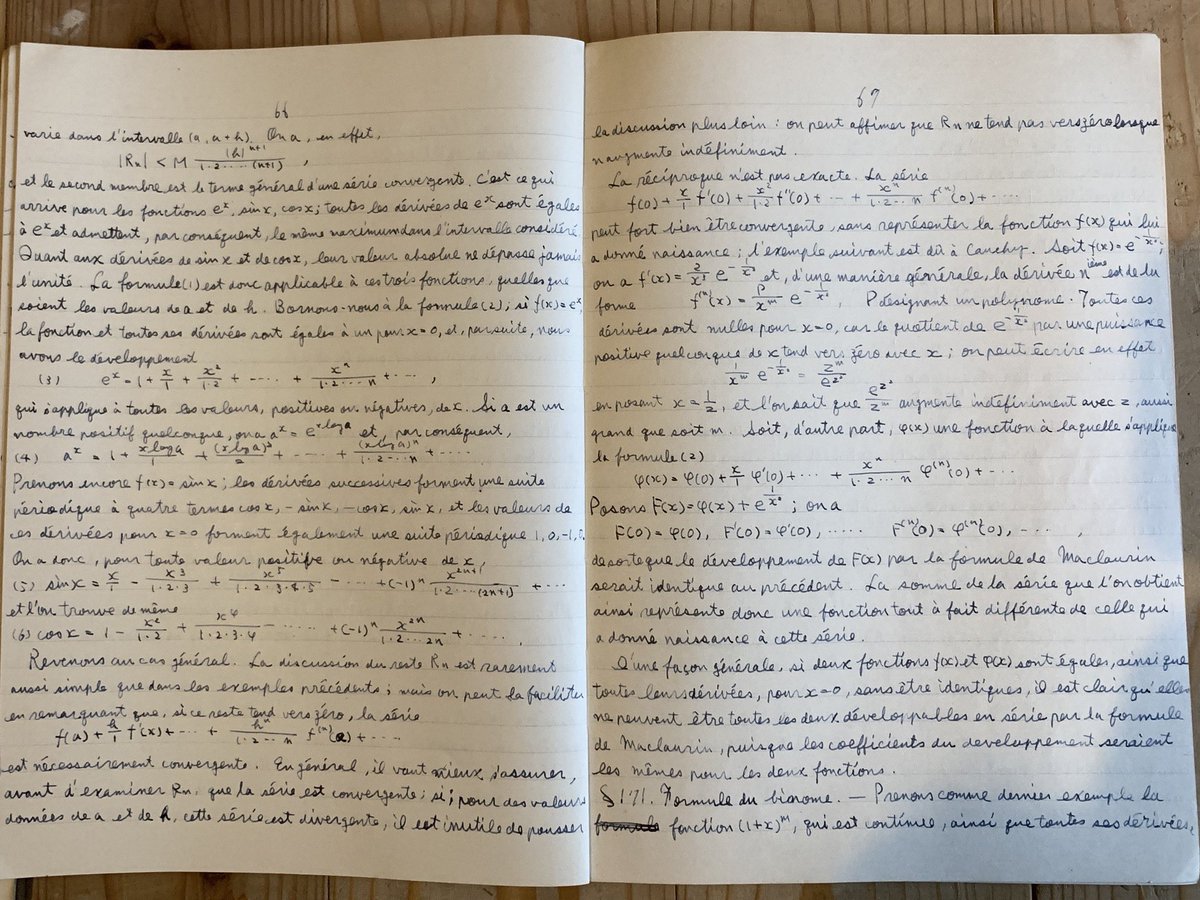 66
varie dans l'intervalle (a, a+h). On a, en effet,
|Rn| < M |h|^{n+1} / 1·2·····(n+1) ,
et le second membre est le terme général d'une série convergente. C'est ce qui
arrive pour les fonctions e^x, sin x, cos x; toutes les dérivées de e^x sont égales
à e^x et admettent, par conséquent, le même maximum dans l'intervalle considéré
Quant aux dérivées de sin x et de cos x, leur valeur absolue ne dépasse jamais
l'unité. La formule (1) est donc applicable à ces trois fonctions, quelles que
soient les valeurs de a et de h. Bornons-nous à la formule (2); si f(x) = e^x,
la fonction et toutes ses dérivées sont égales à un pour x=0, et, par suite, nous
avons le développement
(3) e^x = 1 + x/1 + x^2/1·2 + ···· + x^n/1·2····n + ··· ,
qui s'applique à toutes les valeurs, positives ou négatives, de x. Si a est un
nombre positif quelconque, on a a^x = e^{x log a} et, par conséquent,
(4) a^x = 1 + x log a/1 + (x log a)^2/2 + ···· + (x log a)^n/1·2···n + ····
Prenons encore f(x) = sin x; les dérivées successives forment une suite
périodique à quatre termes cos x, -sin x, -cos x, sin x, et les valeurs de
ces dérivées pour x=0 forment également une suite périodique 1, 0, -1, 0.
On a donc, pour toute valeur positive ou négative de x,
(5) sin x = x/1 - x^3/1·2·3 + x^5/1·2·3·4·5 - ··· +(-1)^n x^{2n+1}/1·2····(2n+1) + ···
et l'on trouve de même
(6) cos x = 1 - x^2/1·2 + x^4/1·2·3·4 - ····· +(-1)^n x^{2n}/1·2···2n + ···· .
Revenons au cas général. La discussion du reste Rn est rarement
aussi simple que dans les exemples précédents; mais on peut la faciliter
en remarquant que, si ce reste tend vers zéro, la série
f(a) + h/1 f'(x) + ··· + h^n/1·2····n f^{(n)}(a) + ····
est nécessairement convergente. En général, il vaut mieux s'assurer,
avant d'examiner Rn, que la série est convergente; si, pour des valeurs
données de a et de h, cette série est divergente, il est inutile de pousser
67
la discussion plus loin : on peut affirmer que Rn ne tend pas vers zéro lorsque
n augmente indéfiniment.
La réciproque n'est pas exacte. La série
f(0) + x/1 f'(0) + x^2/1·2 f''(0) + ··· + x^n/1·2··n f^{(n)}(0) + ····
peut fort bien être convergente, sans représenter la fonction f(x) qui lui
a donné naissance; l'exemple suivant est dû à Cauchy. Soit f(x) = e^{-1/x^2};
on a f'(x) = 2/x^3 e^{-1/x^2} et, d'une manière générale, la dérivée n^{ième} est de la
forme f^{(n)}(x) = P/x^m e^{-1/x^2}, P désignant un polynome. Toutes ces
dérivées sont nulles pour x=0, car le quotient de e^{-1/x^2} par une puissance
positive quelconque de x tend vers zéro avec x; on peut écrire en effet
1/x^m e^{-1/x^2} = z^m/e^{z^2}
en posant x = 1/z, et l'on sait que e^{z^2}/z^m augmente indéfiniment avec z, aussi
grand que soit m. Soit, d'autre part, φ(x) une fonction à laquelle s'applique
la formule (2)
φ(x) = φ(0) + x/1 φ'(0) + ··· + x^n/1·2···n φ^{(n)}(0) + ···
Posons F(x) = φ(x) + e^{1/x^2}; on a
F(0) = φ(0), F'(0) = φ'(0), ····· F^{(n)}(0) = φ^{(n)}(0), ···· ,
de sorte que le développement de F(x) par la formule de Maclaurin
serait identique au précédent. La somme de la série que l'on obtient
ainsi représente donc une fonction tout à fait différente de celle qui
a donné naissance à cette série.
D'une façon générale, si deux fonctions f(x) et φ(x) sont égales, ainsi que
toutes leurs dérivées, pour x=0, sans être identiques, il est clair qu'elles
ne peuvent être toutes les deux développables en série par la formule
de Maclaurin, puisque les coefficients du developpement seraient
les mêmes pour les deux fonctions.
§ 171. Formule du binome. — Prenons comme dernier exemple la
formule fonction (1+x)^m, qui est continue, ainsi que toutes ses dérivées,